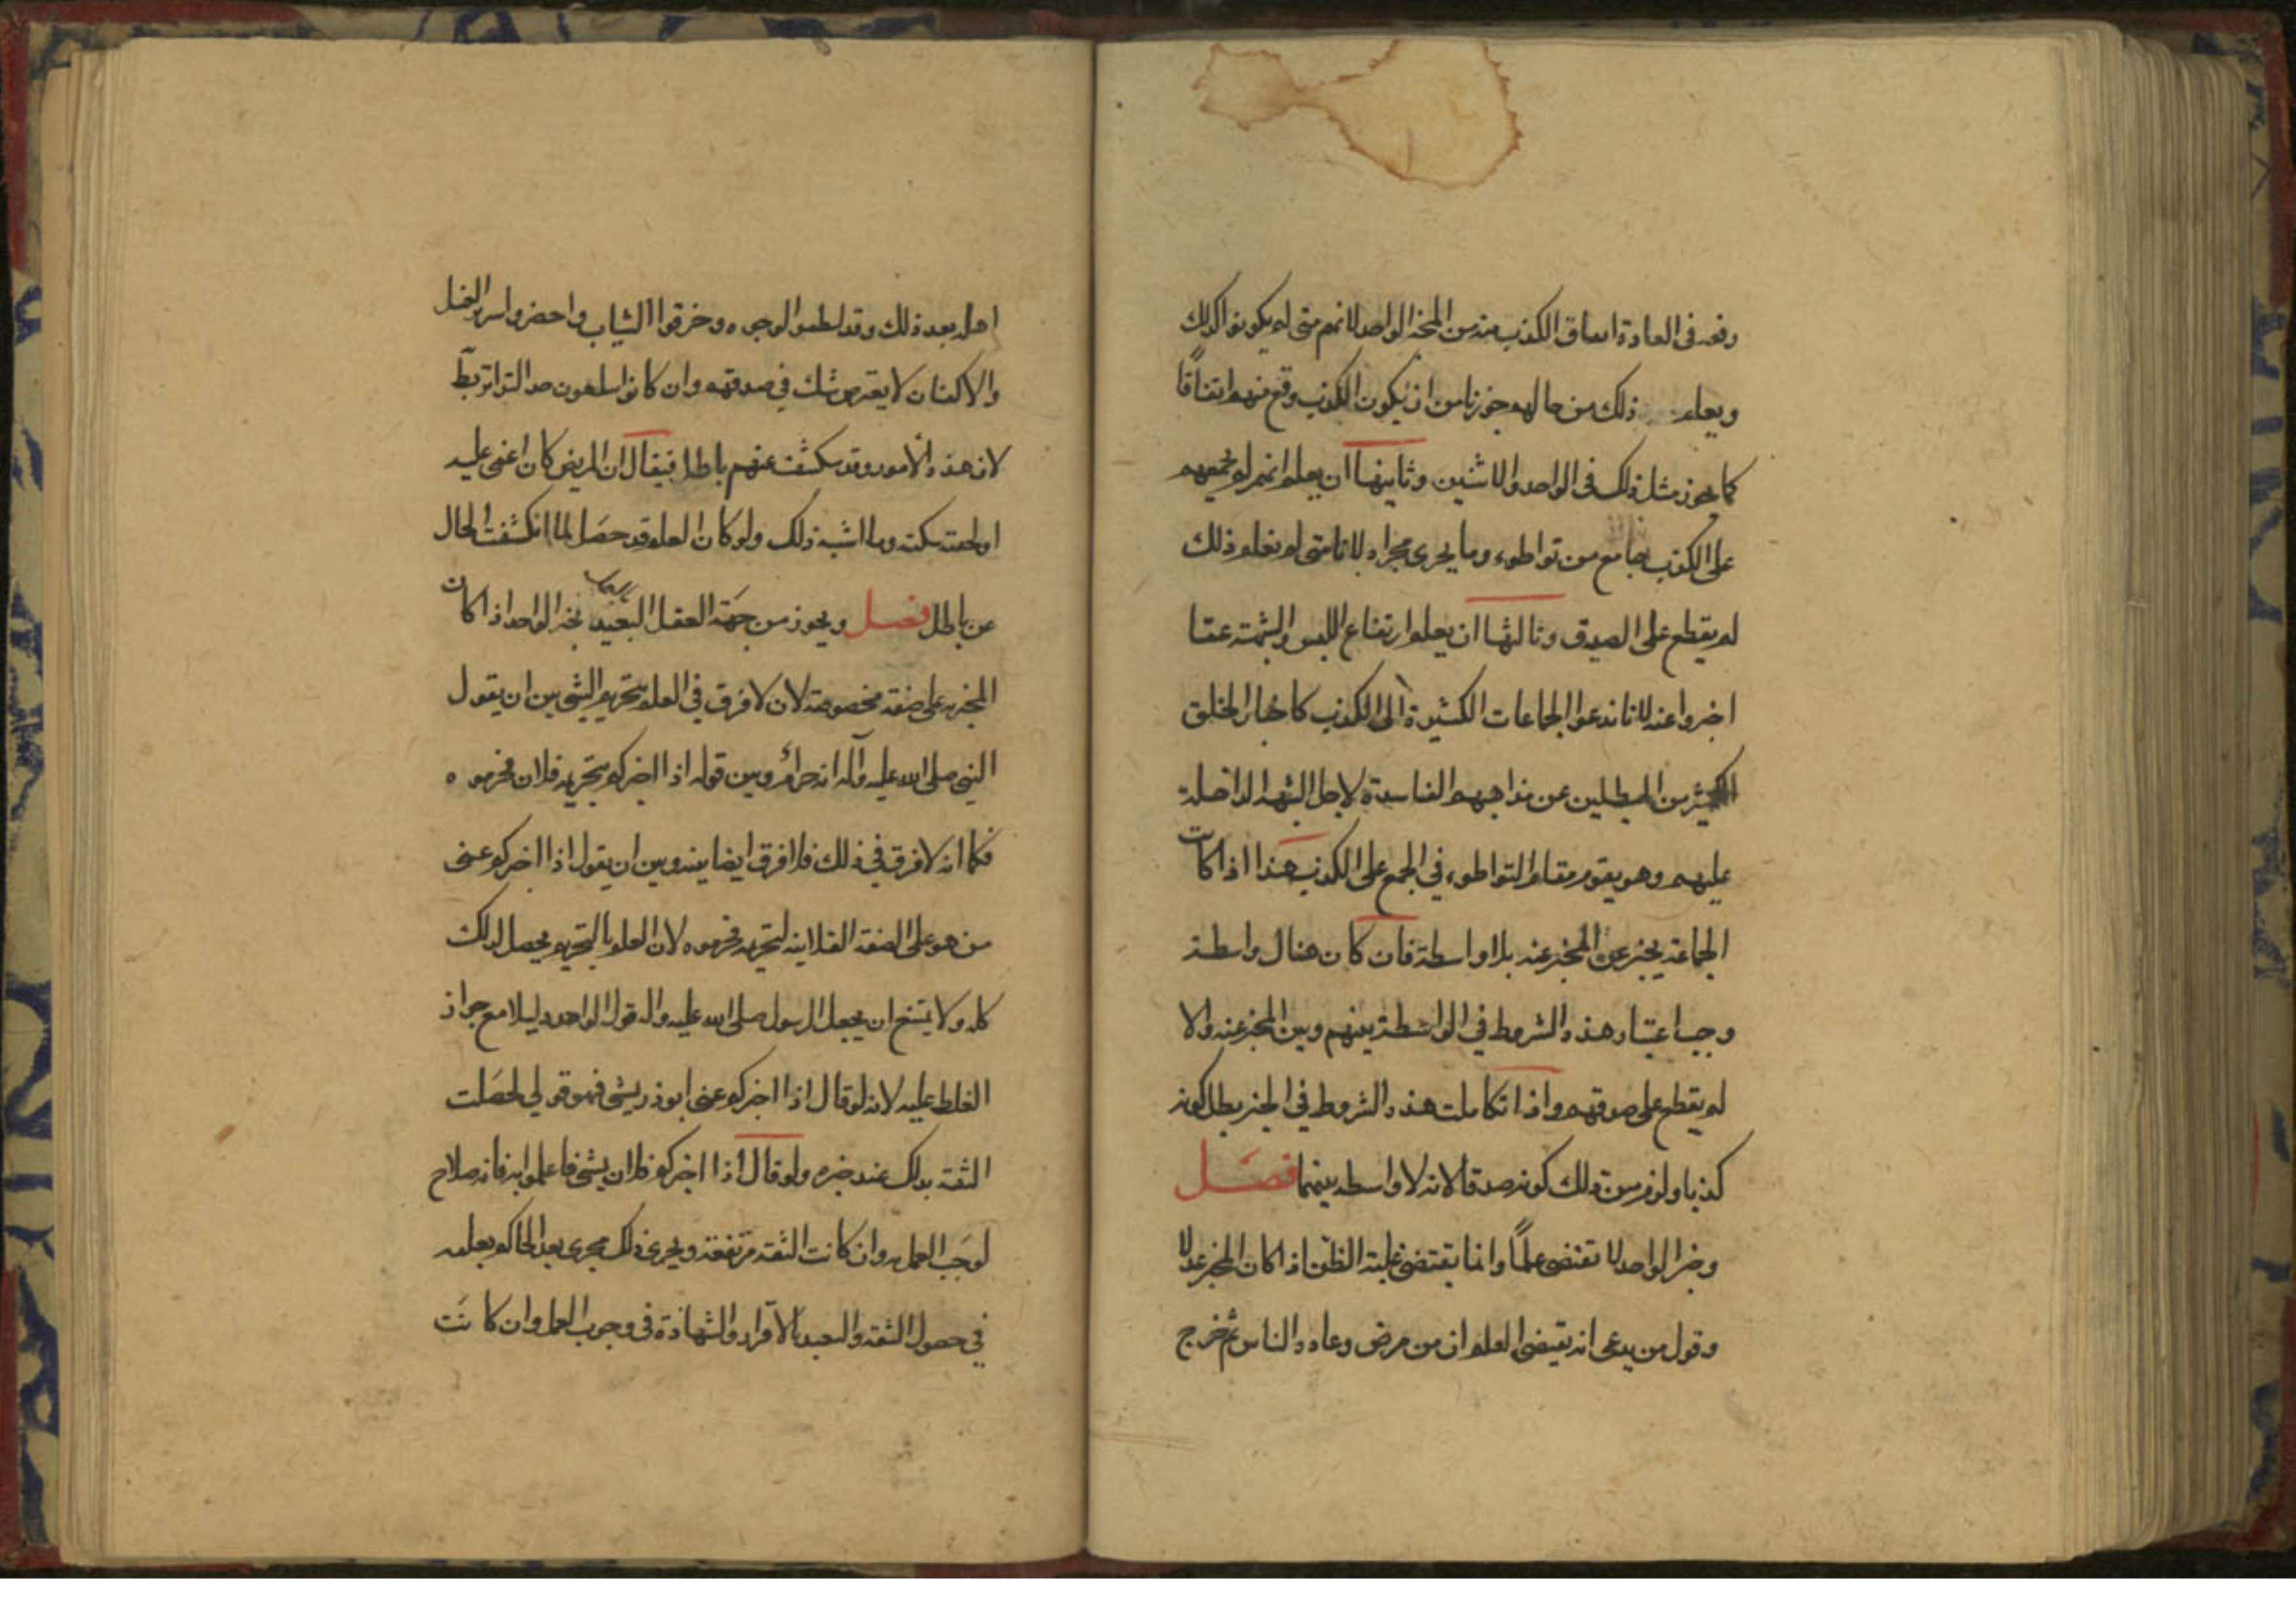 معه في العادة اتفاق الكذب منه من المخبر الواحد لانهم متى لم يكونوا كذلك
ويعلم ذلك من حالهم جوزنا من ان يكون الكذب وقع منهم اتفاقًا
كما يجوز مثل ذلك في الواحد والاثنين وثانيها ان يعلم انهم لم يجمعهم
على الكذب جامع من تواطوء وما يجري مجراه لانا متى لم نعلم ذلك
لم يقطع على الصدق وثالثها ان يعلم ارتفاع اللبس والشبهة عما
اخبروا عنه لانا ندعوا الجماعات الكثيرة الى الكذب كاخبار الخلق
الكثير من المبطلين عن مذاهبهم الفاسدة لاجل الشبهة الداخلة
عليهم وهو يقوم مقام التواطوء في الجمع على الكذب هذا اذا كانت
الجماعة يخبر عن المخبر عنه بلا واسطة فان كان هناك واسطة
وجب اعتبار هذه الشروط في الواسطة بينهم وبين المخبر عنه والا
لم يقطع على صدقهم واذا تكاملت هذه الشروط في الخبر بطل كونه
كذبا ولزم من ذلك كونه صدقا لانه لا واسطه بينهما فصل
وخبر الواحد لا تقتضى علمًا وانما يقتضى غلبة الظن اذا كان المخبر عدلا
وقول من يدعى انه يقتضى العلم ان من مرض وعاده الناس ثم خرج
اهله بعد ذلك وقد لطموا الوجوه وخرقوا الثياب واحضروا سرير الغسل
والاكفان لا يعترض شك في صدقهم وان كانوا لا يبلغون حد التواتر بط
لان هذه الامور وقد تكشفت عنهم باطلا فيقال ان المريض كان اغمى عليه
او لحقته سكتة وما اشبه ذلك ولو كان العلم قد حصل لما انكشفت الحال
عن باطل فصل ويجوز من جهة العقل التعبد بخبر الواحد اذا كان
المخبر به على صفة مخصوصة لان لا فرق في العلم بتحريم الشئ بين ان يقول
النبي صلى الله عليه وآله انه حرام وبين قوله اذا اخبركم بتحريمه فلان فحرموه
فكما انه لا فرق في ذلك فلا فرق ايضا بينه وبين ان يقول اذا اخبركم عنى
من هو على الصفة الفلانية بتحريمه فحرموه لان العلم بالتحريم يحصل بذلك
كله ولا يمتنع ان يجعل الرسول صلى الله عليه واله قول الواحد دليلا مع جواز
الغلط عليه لانه لو قال اذا اخبركم عنى ابوذر بشئ فهو قولي لحصلت
الثقة بذلك عند خبره ولو قال اذا اخبركم فلان بشئ فاعملوا به فانه صلاح
لوجب العمل به وان كانت الثقة مرتفعة ويجري ذلك مجرى تعبد الحاكم بعلمه
في حصول الثقة والتعبد بالاقرار والشهادة في وجوب العمل وان كانت